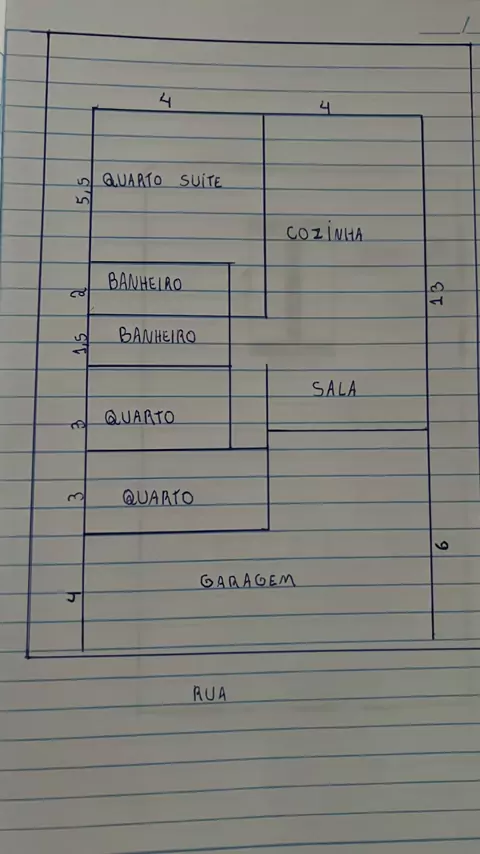 4
4
5,5
QUARTO SUÍTE
COZINHA
2
BANHEIRO
13
1,5
BANHEIRO
SALA
3
QUARTO
3
QUARTO
6
4
GARAGEM
RUA